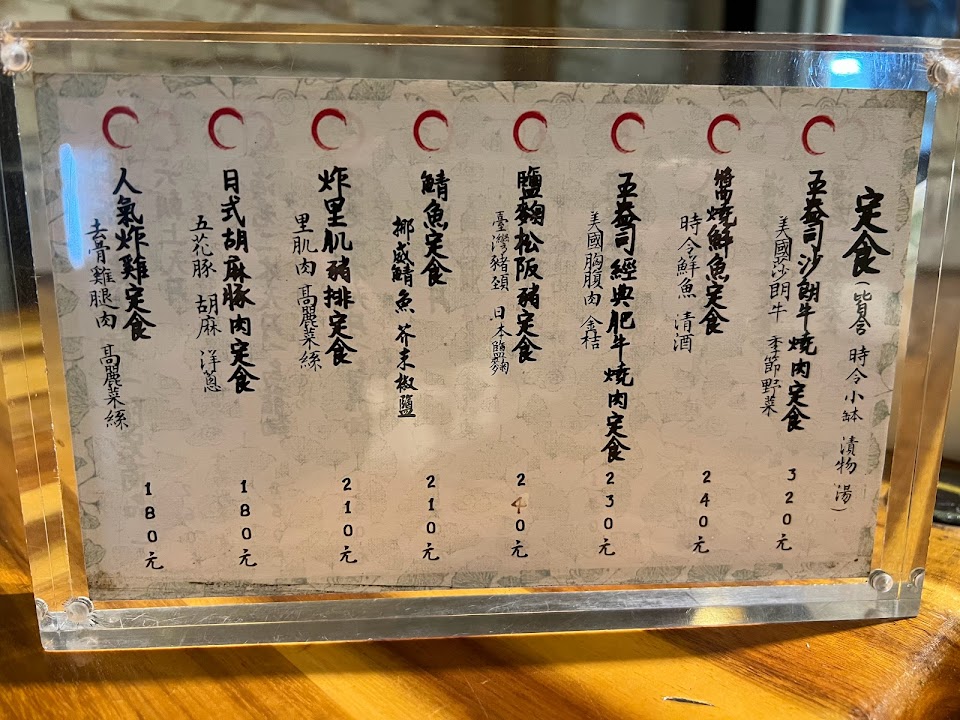 定食(皆含 時令小缽 漬物 湯)
五燊司沙朗牛燒肉定食 320元
美國沙朗牛 季節野菜
醬燒鮮魚定食 240元
時令鮮魚 清酒
五燊司經典肥牛燒肉定食 230元
美國胸腹肉 金桔
鹽麴松阪豬定食 240元
臺灣豬頸 日本鹽麴
鯖魚定食 210元
挪威鯖魚 芥末椒鹽
炸里肌豬排定食 210元
里肌肉 高麗菜絲
日式胡麻豚肉定食 180元
五花豚 胡麻 洋蔥
人氣炸雞定食 180元
去骨雞腿肉 高麗菜絲